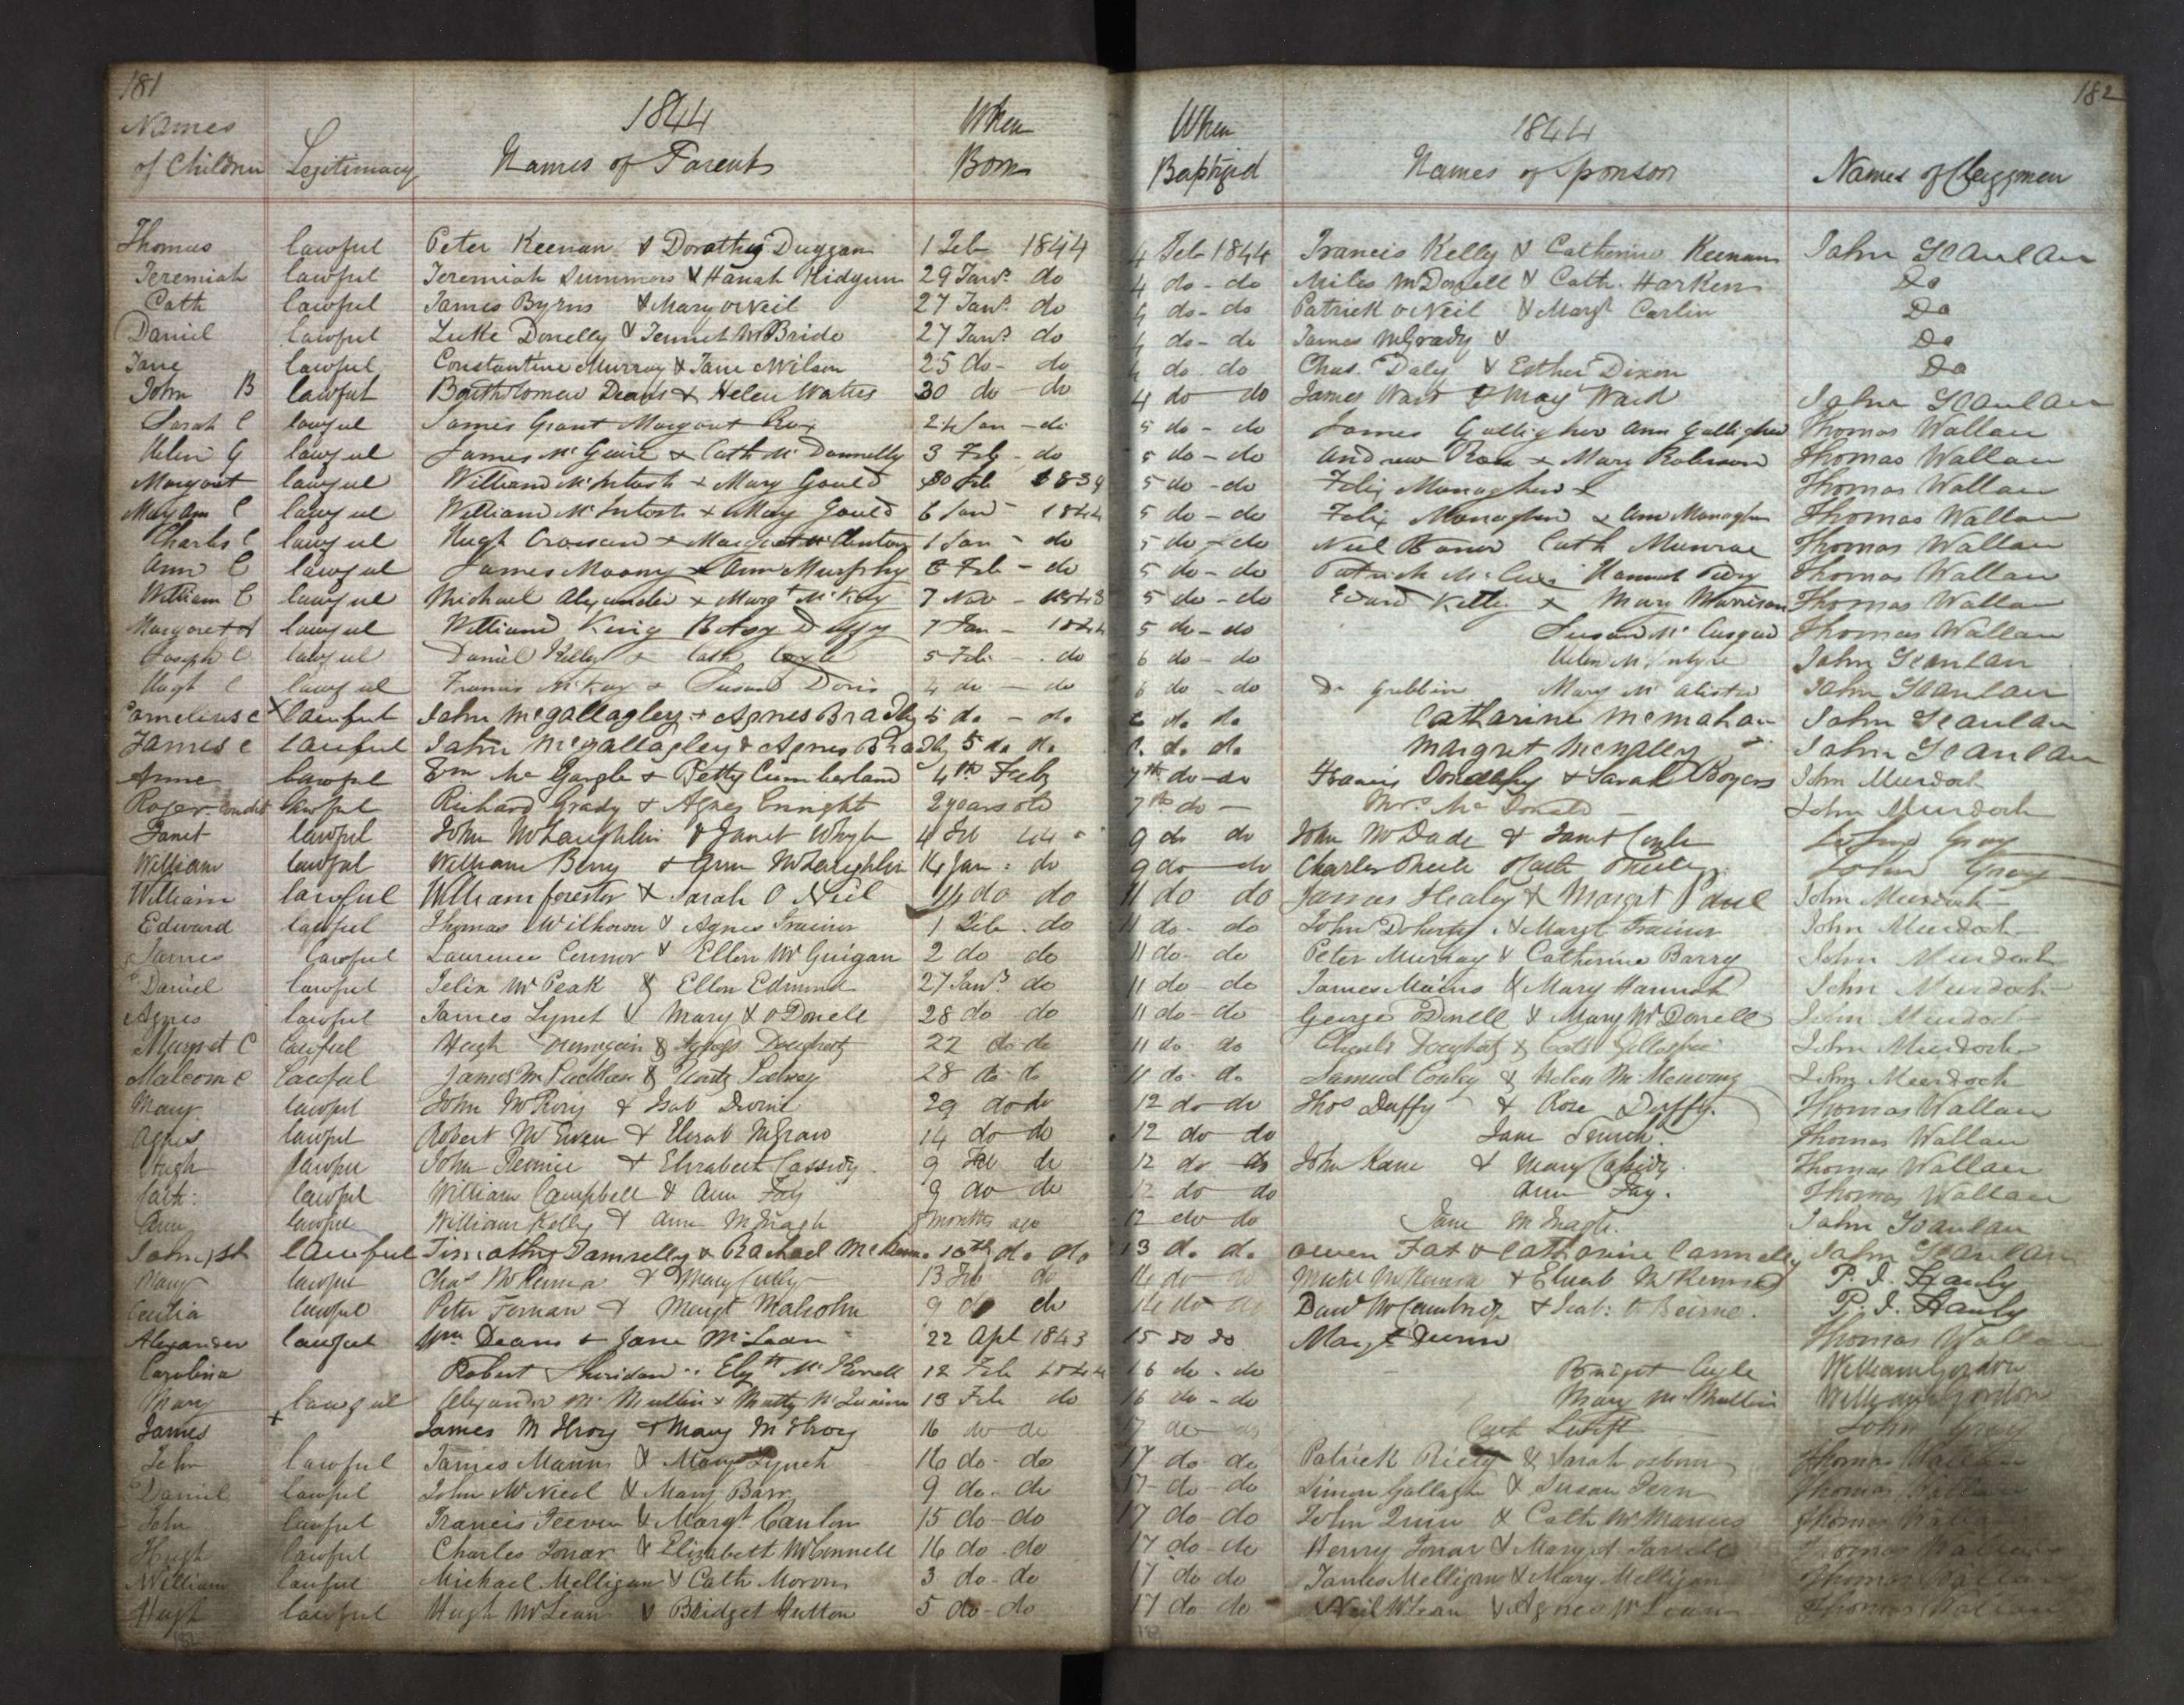 181
182
Names of Children Legitimacy 1844 Names of Parents When Born When Baptized 1844 Names of Sponsors Names of Clergymen
Thomas lawful Peter Keenan & Dorothy Duggan 1 Feb 1844 4 Feb 1844 Francis Kelly & Catherine Keenan John Scanlan
Jeremiah lawful Jeremiah Summors & Hanah 29 Jany do 4 do - do Miles McDonell & Cath. Harken Do
Cath lawful James Byrns & Mary O'Neil 27 Jany do 4 do - do Patrick O'Neil & Margt Carlin Do
Daniel lawful Luke Donelly & Jennet McBride 27 Jany do 4 do - do James McGrady & Do
Jane lawful Constantine Murray & Jane Wilson 25 do - do 4 do do Chas. Daly & Esther Dixon Do
John B lawful Bartholomew Deans & Helen Waters 30 do do 4 do do James Ward & May Ward John Scanlan
Sarah C lawful James Grant Margaret 24 Jan - do 5 do - do James Galligher Ann Galligher Thomas Wallace
Helen G lawful James McGuire & Cath McDonnelly 3 Feb - do 5 do - do Andrew Ross & Mary Robinson Thomas Wallace
Margaret lawful William McIntosh & Mary Gould Feb 1839 5 do - do Felix Monaghan & Thomas Wallace
Mary Ann C lawful William McIntosh & Mary Gould 6 Jan - 1844 5 do - do Felix Monaghan & Ann Monaghan Thomas Wallace
Charles C lawful Hugh Crossan & Margaret 1 Jan - do 5 do - do Neil Cath Munroe Thomas Wallace
Ann C lawful James Moony & Ann Murphy Feb - do 5 do - do Patrick Hannah Thomas Wallace
William C lawful Michael Alexander & Margt McKay 7 Nov - 1843 5 do - do Edward Kelly & Mary Morrison Thomas Wallace
Margaret A lawful William King Betsy Duffy 7 Jan - 1844 5 do - do Susan Thomas Wallace
Joseph C lawful Daniel Kelly & Cath Coyle 5 Feb - do 6 do - do Helen McIntyre John Scanlan
Hugh C lawful Francis McKay & Susand Doris 4 do - do 6 do - do Gribbin Mary McAlister John Scanlan
Cornelius C lawful John McGallagley & Agnes Bradly 5 do - do do do Catharine McMahan John Scanlan
James C lawful John McGallagley & Agnes Bradly 5 do do do do Margret McNalley John Scanlan
Anne lawful & Betty Cumberland 4th Feby 7th do - do Francis & Sarah Rogers John Murdoch
Roger lawful Richard Grady & Agnes Enright 2 years old 7th do - Mrs McDonald John Murdoch
Janet lawful John McLaughlin & Janet Whyte 4 Feb 44 9 do do John McDade & Janet Coyle John Gray
William lawful William Berry & Ann McLaughlin 14 Jan : do 9 do do Charles John Gray
William lawful William forester & Sarah O Neil 14 do do 11 do do James Healey & Margrt Paul John Murdoch
Edward lawful Thomas & Agnes Trainor 1 Feb . do 11 do - do John Doherty & Margt Trainor John Murdoch
James lawful Laurence Connor & Ellen McGuigan 2 do do 11 do - do Peter Murray & Catherine Barry John Murdoch
Daniel lawful Felix McPeak & Ellen Edmund 27 Jany do 11 do - do James Mains & Mary Hannah John Murdoch
Agnes lawful James Lynch & Mary O'Donell 28 do do 11 do - do George Donell & Mary McDonell John Murdoch
Margret C lawful Hugh & Agnes Dougherty 22 do do 11 do do Charles Dougherty & Cath Gillespie John Murdoch
Malcom C lawful James & 28 do do 11 do - do Samuel Conley & Helen John Murdoch
Mary lawful John McRory & Isab 29 do do 12 do do Thos Duffy & Rose Duffy. Thomas Wallace
Agnes lawful Robert McEwen & Elizab McGraw 14 do do 12 do do Jane Thomas Wallace
Hugh lawful John & Elizabeth Cassidy 9 Feb do 12 do do John Kane & Mary Cassidy. Thomas Wallace
Cath: lawful William Campbell & Ann Fay 9 do do 12 do do Ann Fay. Thomas Wallace
Ann lawful William Kelly & Ann months ago 12 do do Jane John Scanlan
John lawful Timothy & Rachael McKenna 10th do do 13 do do Owen & Catharine Connelly John Scanlan
Mary lawful Chas McKenna & Mary 13 Feb do 14 do do Michl McKenna & Elizab McKenna P. J. Hanly
Cecilia lawful Peter & Margt Malcolm 9 do do 14 do do David McCambridge & Isab: O'Beirne. P. J. Hanly
Alexander lawful Wm Deans & Jane McLean 22 Apl 1843 15 do do Margt Dunn Thomas Wallace
Carolina Robert Sheridan Elyth 12 Feb 1844 16 do . do Bridget William Gordon
Mary lawful Alexander McMullin & 13 Feb do 16 do - do Mary McMullin William Gordon
James James McIlroy & Mary McIlroy 16 do do 17 do do Cath Swift John Gray
John lawful James Manns & Mary Lynch 16 do - do 17 do - do Patrick & Sarah Osborn Thomas Wallace
Daniel lawful John McNicol & Mary Barr. 9 do - do 17 do - do Simon Gallagher & Susan Thomas Wallace
John lawful Francis & Margt Canlon 15 do - do 17 do - do John Quin & Cath McManus Thomas Wallace
Hugh lawful Charles Jonar & Elizabeth McConnell 16 do . do 17 do - do Henry Jonar & Mary A Thomas Wallace
William lawful Michael Melligan & Cath 3 do - do 17 do do James Melligan & Mary Melligan Thomas Wallace
Hugh lawful Hugh McLean & Bridget Hutton 5 do - do 17 do do Neil McLean & Agnes McLean Thomas Wallace